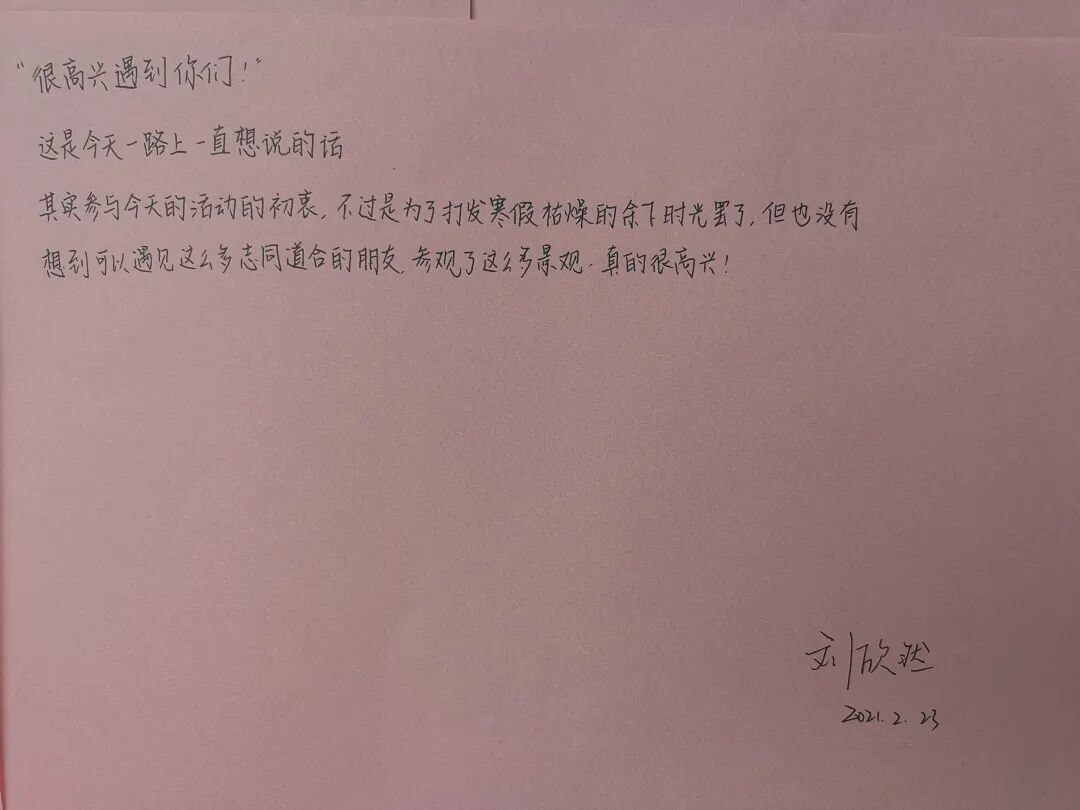 “很高兴遇到你们！”
这是今天一路上一直想说的话
其实参与今天的活动的初衷，不过是为了打发寒假枯燥的余下时光罢了，但也没有
想到可以遇见这么多志同道合的朋友，参观了这么多景观，真的很高兴！
刘欣然
2021.2.23